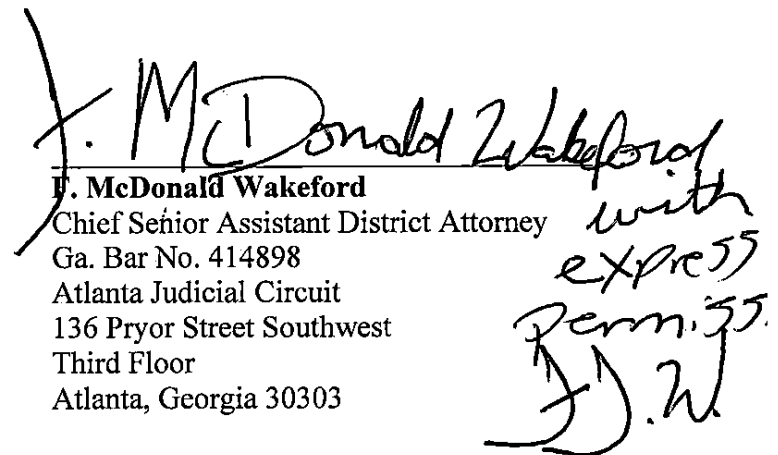 F. McDonald Wakeford
with
express
permiss.
F. McDonald Wakeford
Chief Senior Assistant District Attorney
Ga. Bar No. 414898
Atlanta Judicial Circuit
136 Pryor Street Southwest
Third Floor
Atlanta, Georgia 30303